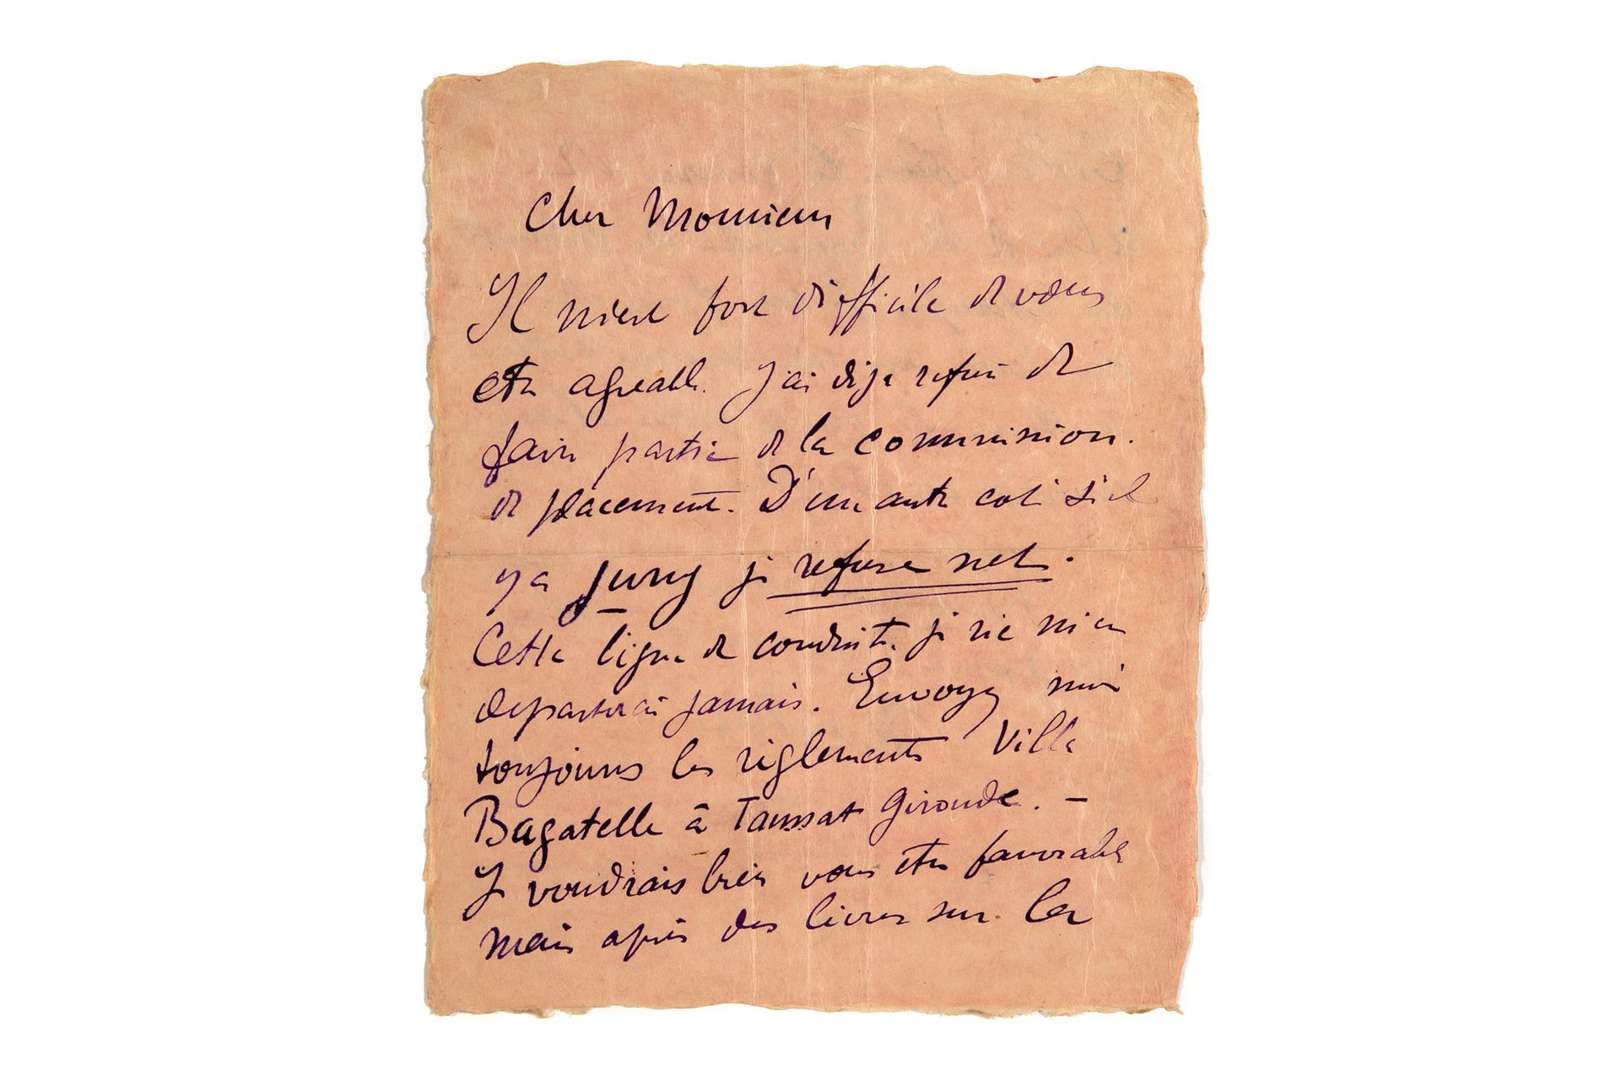 Cher Monsieur
Il m'est fort difficile de vous
etre agreable. J'ai deja refusé de
faire partie de la commission
de placement. D'un autre coté s'il
y a jury je refuse net.
Cette ligne de conduite je ne m'en
departirai jamais. Envoyez moi
toujours les règlements Villa
Bagatelle à Taussat Gironde. –
Je voudrais bien vous etre favorable
mais après des livres sur les